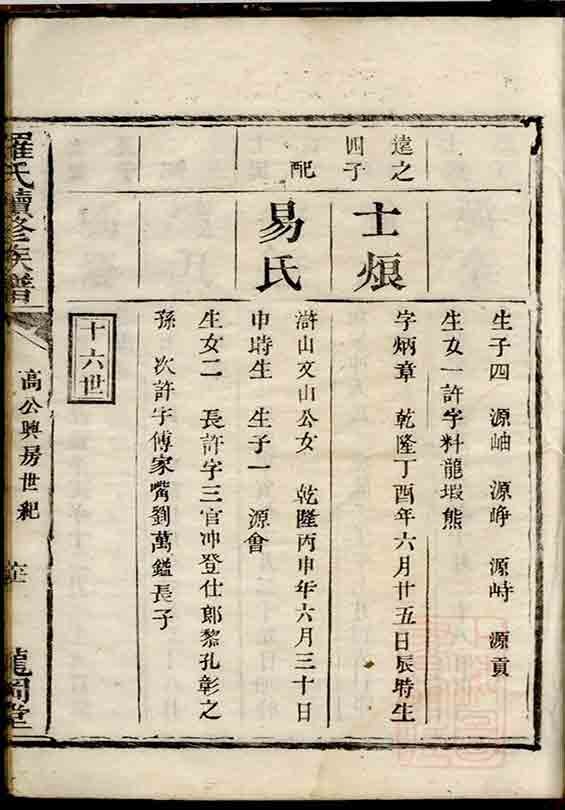 生子四 源岫 源崢 源峙 源貢
生女一許字料龍塅熊
遠之
四子
士烺
字炳章 乾隆丁酉年六月廿五日辰時生
配
易氏
滸山文山公女 乾隆丙申年六月三十日
申時生 生子一 源會
生女二 長許字三官冲登仕郎黎孔彰之
孫 次許字傅家嘴劉萬鎰長子
十六世
羅氏續修族譜
高公興房世紀
龍岡堂